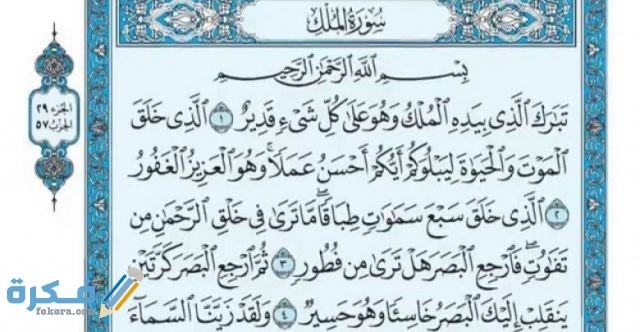 سُورَةُ المُلْكِ
بِسْمِ اللَّهِ الرَّحْمَٰنِ الرَّحِيمِ
الجزء ٢٩
الحزب ٥٧
تَبَٰرَكَ الَّذِي بِيَدِهِ الْمُلْكُ وَهُوَ عَلَىٰ كُلِّ شَيْءٍ قَدِيرٌ ١ الَّذِي خَلَقَ
الْمَوْتَ وَالْحَيَوٰةَ لِيَبْلُوَكُمْ أَيُّكُمْ أَحْسَنُ عَمَلًا ۚ وَهُوَ الْعَزِيزُ الْغَفُورُ
٢ الَّذِي خَلَقَ سَبْعَ سَمَٰوَٰتٍ طِبَاقًا ۖ مَّا تَرَىٰ فِي خَلْقِ الرَّحْمَٰنِ مِن
تَفَٰوُتٍ ۖ فَارْجِعِ الْبَصَرَ هَلْ تَرَىٰ مِن فُطُورٍ ٣ ثُمَّ ارْجِعِ الْبَصَرَ كَرَّتَيْنِ
يَنقَلِبْ إِلَيْكَ الْبَصَرُ خَاسِئًا وَهُوَ حَسِيرٌ ٤ وَلَقَدْ زَيَّنَّا السَّمَآءَ
فكرة
fekera.com